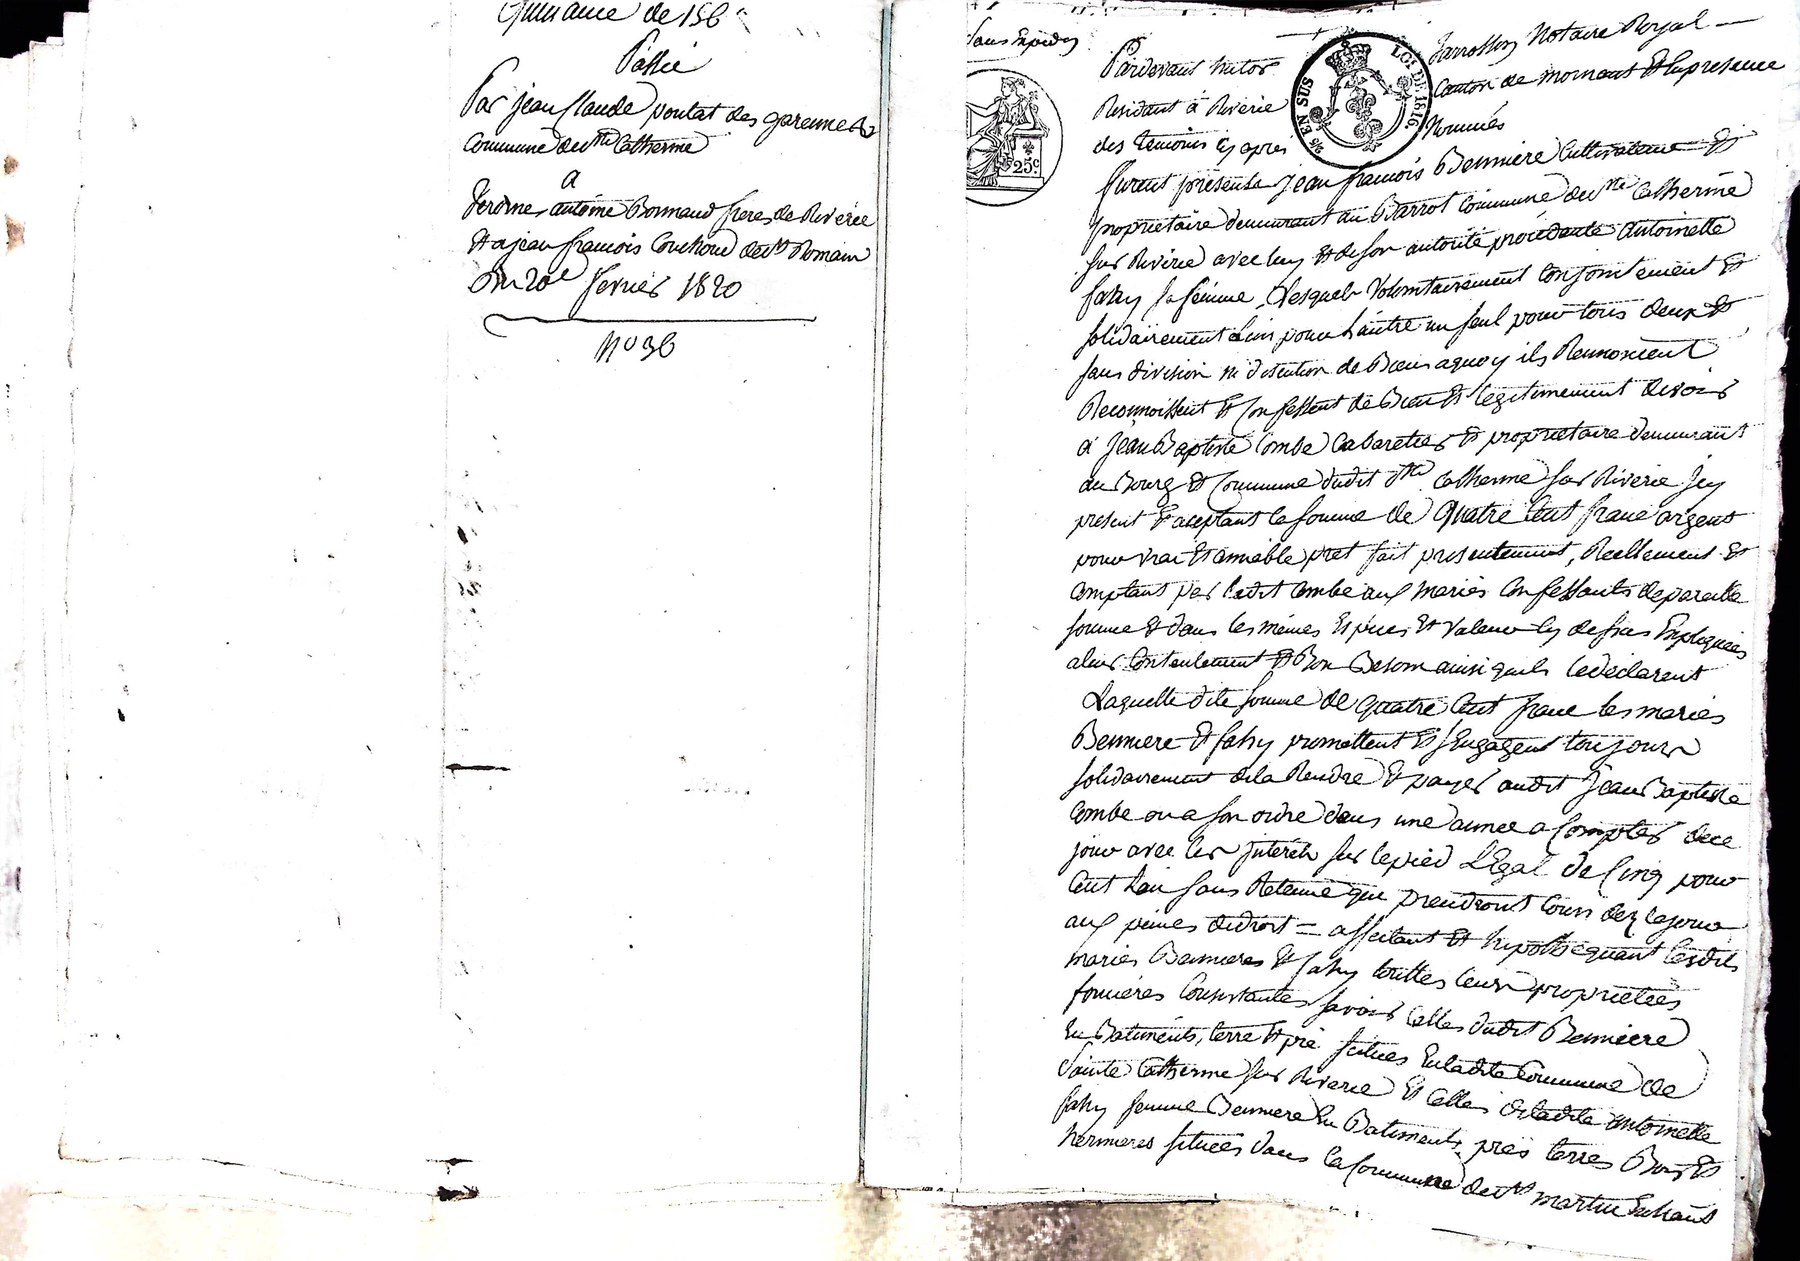 Quittance de 156
Passée
Par jean Claude poulat des garennes
Commune de Ste Catherine
a
Jerome, antoine Bonnand freres de Riverie
Et a jean francois Couchoud de St Romain
Du 20e fevrier 1820
No 36
sans Expedon
Pardevant Victor Jarrosson Notaire Royal
Residant à Riverie Canton de mornant Et En presence
des temoins Cy apres Nommés
EN SUS
LOI DE 1816
25c
furent présents jean francois Bennière Cultivateur Et
proprietaire demeurant au Barrot Commune de Ste Catherine
sur Riverie avec luy Et de son autorité procédante Antoinette
fahy sa femme, Lesquels Volontairement Conjointement Et
solidairement L'un pour L'autre un seul pour tous deux Et
sans division ni discution de Biens aquoy ils Renoncent
Reconnoissent Et Confessent de Bien Et legitimement devoir
à Jean Baptiste Combe Cabaretier Et proprietaire demeurant
au Bourg Et Commune dudit Ste Catherine sur Riverie Icy
present Et aceptant la somme de Quatre Cent franc argent
pour vrai Et amiable pret fait presentement, Reellement Et
Comptant par Ledit Combe aux mariés Confessants de pareille
somme Et dans les mêmes Espèces Et Valeur Cy dessus Expliquées
a leur Contentement Et Bon Besoin ainsi quils le déclarent
Laquelle dite somme de quatre Cent franc les mariés
Benniere Et fahy promettent Et s'Engagent toujours
solidairement de la Rendre Et payer audit Jean Baptiste
Combe ou a son ordre dans une année a Compter de ce
jour avec les Intérêts sur le pied L'Egal de Cinq pour
Cent L'an sans Retenue qui prendront Cours dez ce jour
aux peines de droit = affectant Et hypothequant lesdits
mariés Bennieres Et fahy touttes leurs proprietées
foncières Consistantes savoir Celles dudit Bennière
En Batiments, terre Et pré scitués En ladite Commune de
Sainte Catherine sur Riverie Et Celles de ladite Antoinette
fahy femme Benniere En Batiments, près terres Bois Et
hermieres situées dans la Commune de St martin En haut